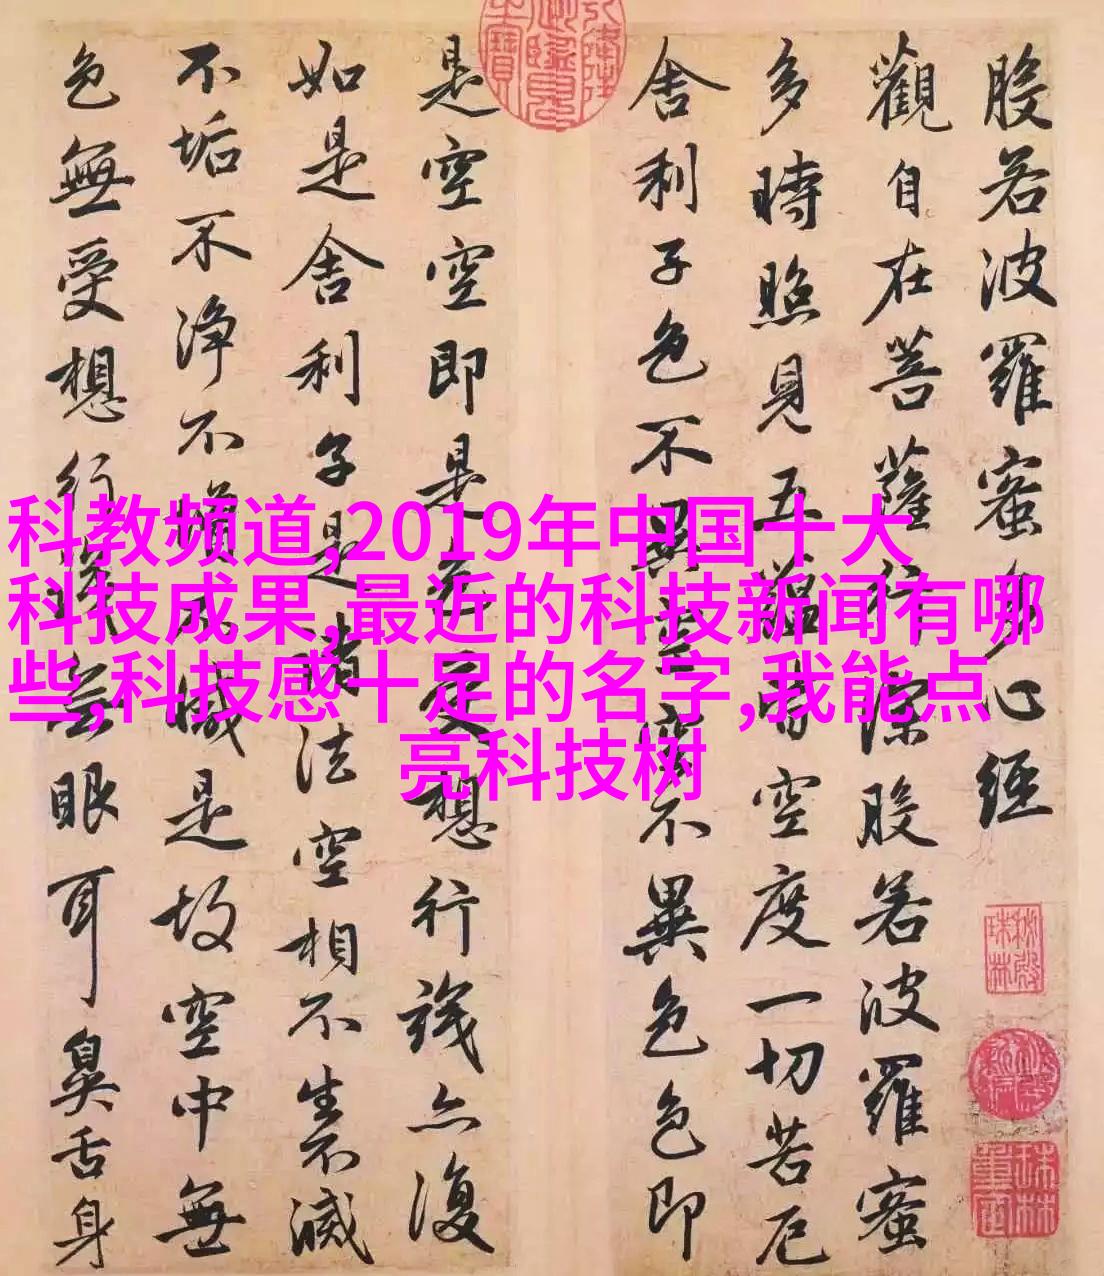 般若波羅蜜多心經
觀自在菩薩行深般若波羅蜜
多時照見五蘊皆空度一切苦厄
舍利子色不異空空不異色色即
是空空即是色受想行識亦復
如是舍利子是諸法空相不生不滅
不垢不淨不增不減是故空中無
色無受想行識无眼耳鼻舌身
科教频道,2019年中国十大
科技成果,最近的科技新闻有哪
些,科技感十足的名字,我能点
亮科技树